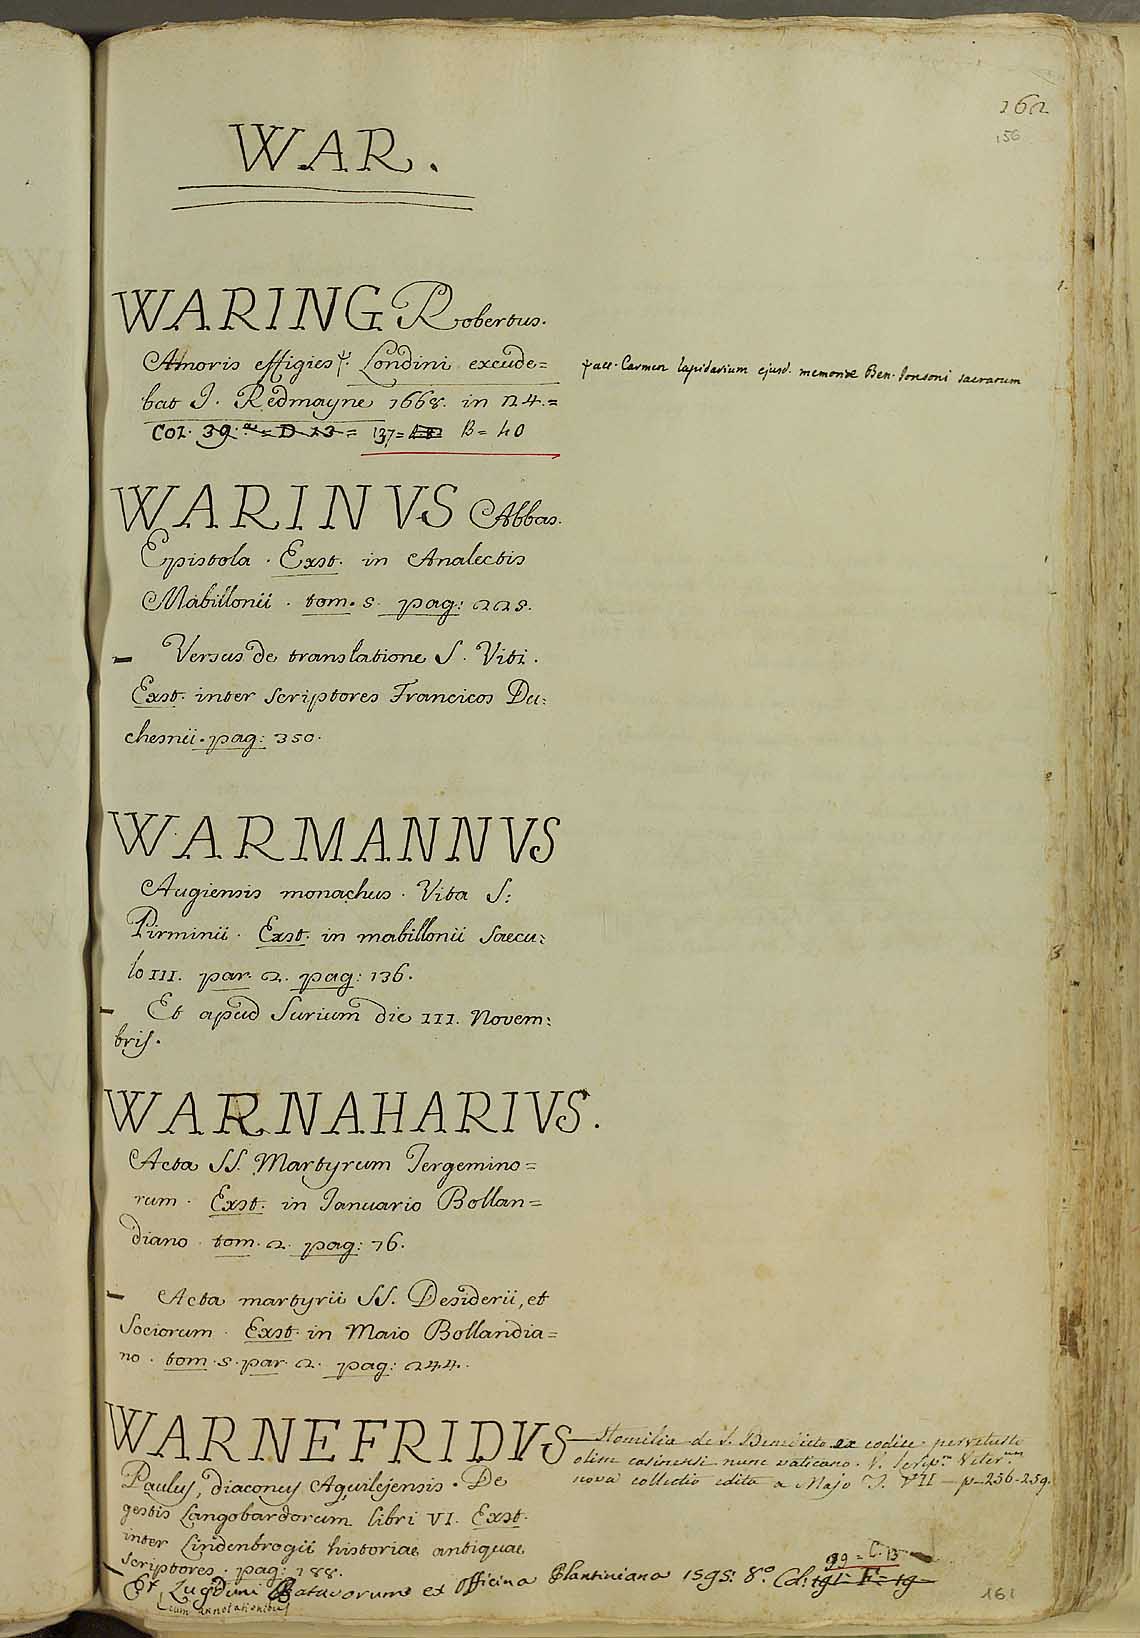 162
156
WAR.
WARING Robertus.
Amoris effigies ψ. Londini excude=
bat J. Redmayne 1668. in 24.=
Col. 39. = D 23 = 137= B= 40
ψ acc. Carmen lapidarium ejusd. memoriæ Ben. Jonsoni sacrarum
WARINVS Abbas.
Epistola. Exst. in Analectis
Mabillonii. tom. 5. pag: 225.
– Versus de translatione S. Viti.
Exst. inter scriptores Francicos Du:
chesnii. pag: 350.
WARMANNVS
Augiensis monachus. Vita S:
Pirminii. Exst. in mabillonii Saecu:
lo III. par. 2. pag: 136.
– Et apud Surium die III. Novem:
bris.
WARNAHARIVS.
Acta SS. Martyrum Tergemino=
rum. Exst. in Ianuario Bollan=
diano. tom. 2. pag: 76.
– Acta martyrii SS. Desiderii, et
Sociorum. Exst. in Maio Bollandia=
no. tom. 5. par. 2. pag: 244.
WARNEFRIDVS
Paulus, diaconus Aquilejensis. De
gestis Langobardorum libri VI. Exst.
inter Lindenbrogii historiae antiquae
scriptores. pag: 188.
– Et Lugduni Batavorum ex officina Plantiniana 1595: 8.° Col: 191 = F = 19
99 = C. 13
cum annotationibus
– Homilia de S. Benedicto ex codice pervetusto
olim casinensi nunc vaticano. V. Scrip.m Veter.um
nova collectio edita a Majo T. VII – p–256-259.
161